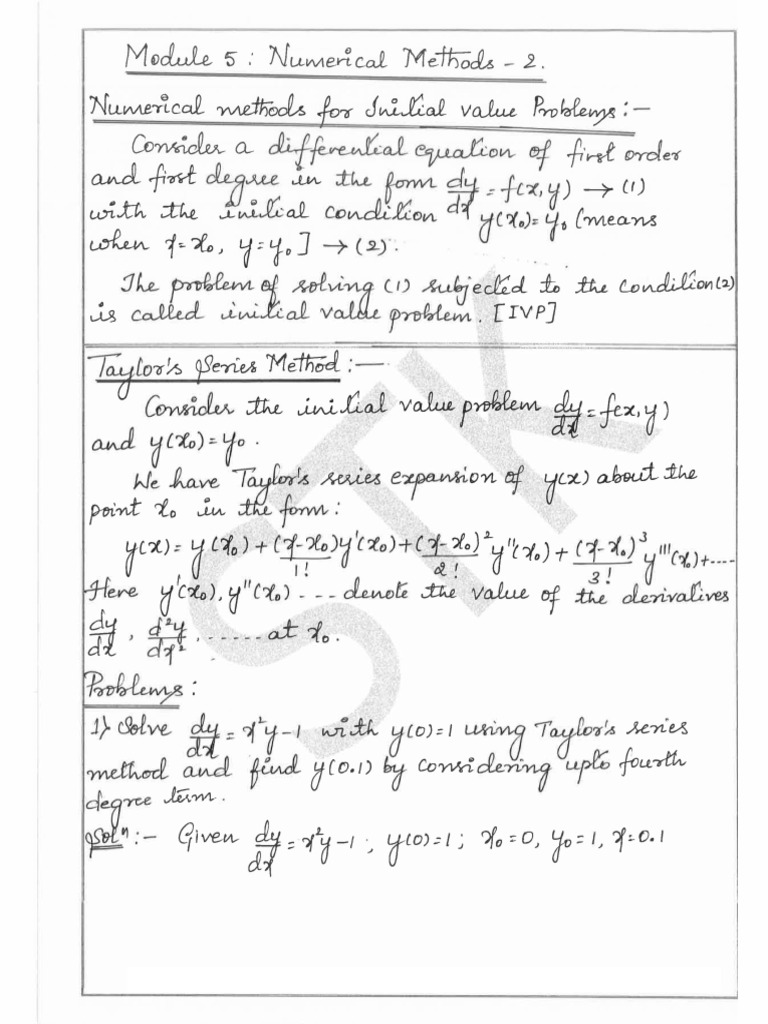 Module 5 : Numerical Methods - 2.
Numerical methods for Initial value Problems:-
Consider a differential equation of first order
and first degree in the form dy/dx = f(x,y) → (1)
with the initial condition y(x₀)=y₀ (means
when x=x₀, y=y₀ ] → (2).
The problem of solving (1) subjected to the condition(2)
is called initial value problem. [IVP]
Taylor's Series Method:-
Consider the initial value problem dy/dx = f(x,y)
and y(x₀)=y₀.
We have Taylor's series expansion of y(x) about the
point x₀ in the form:
y(x) = y(x₀) + (x-x₀)/1! y'(x₀) + (x-x₀)²/2! y''(x₀) + (x-x₀)³/3! y'''(x₀)+....
Here y'(x₀), y''(x₀) .... denote the value of the derivatives
dy/dx , d²y/dx² , ...... at x₀.
Problems:
1) Solve dy/dx = x²y-1 with y(0)=1 using Taylor's series
method and find y(0.1) by considering upto fourth
degree term.
Solⁿ:- Given dy/dx = x²y-1 ; y(0)=1; x₀=0, y₀=1, x=0.1
STK